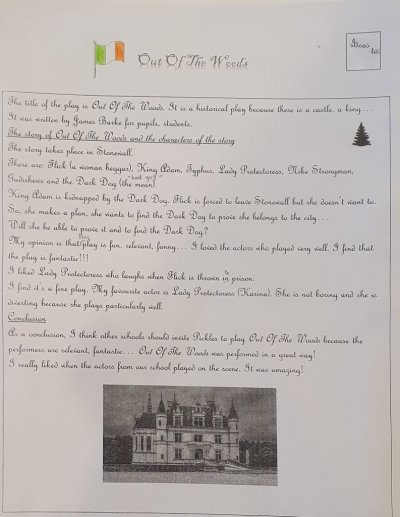 Out Of The Woods
The title of the play is Out Of The Woods. It is a historical play because there is a castle, a king...
It was written by James Barke for pupils, students.
The story of Out Of The Woods and the characters of the story
The story takes place in Stonewall.
There are: Flick (a woman beggar), King Adam, Typhus, Lady Protectoress, Nike Strongman,
"bad guy"
Gudishews and the Dark Dog (the mean).
King Adam is kidnapped by the Dark Dog. Flick is forced to leave Stonewall but she doesn't want to.
So, she makes a plan, she wants to find the Dark Dog to prove she belongs to the city...
Will she be able to prove it and to find the Dark Dog?
My opinion is that play is fun, relevant, funny... I loved the actors who played very well. I find that
the play is fantastic!!!
I liked Lady Protectoress who laughs when Flick is thrown in prison.
I find it's a fine play. My favourite actor is Lady Protectoress (Karina). She is not boring and she is
diverting because she plays particularly well.
Conclusion
As a conclusion, I think other schools should invite Pickles to play Out Of The Woods because the
performers are relevant, fantastic... Out Of The Woods was performed in a great way!
I really liked when the actors from our school played on the scene. It was amazing!